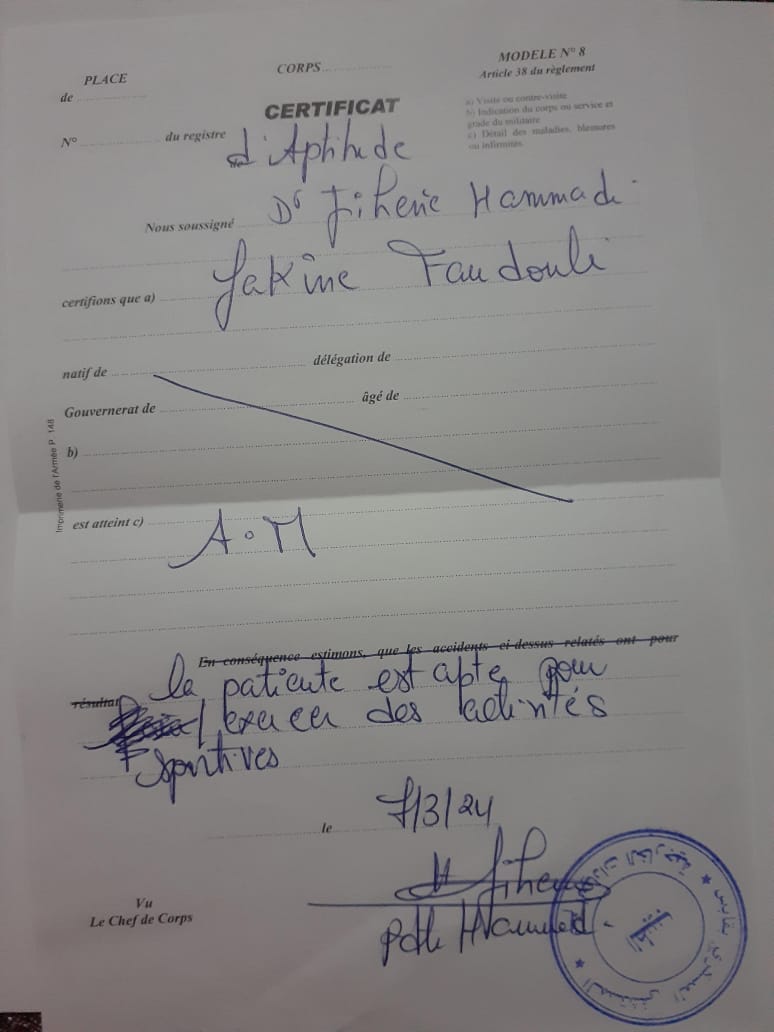 PLACE
CORPS
MODELE N° 8
Article 38 du règlement
de
CERTIFICAT
a) Visite ou contre-visite
b) Indication du corps ou service et
grade du militaire
c) Détail des maladies, blessures
ou infirmités.
N° du registre
d'Aptitude
Nous soussigné Dr Jihene Hammadi
certifions que a) Yakine Taudouli
natif de délégation de
Gouvernerat de âgé de
b)
Imprimerie de l'Armée P. 148
est atteint c)
A.M
En conséquence estimons, que les accidents ci-dessus relatés ont pour
résultat
la patiente est apte pour
exercer des activités
sportives
le 7/3/24
Vu
Le Chef de Corps
المستشفى العسكري بقابس